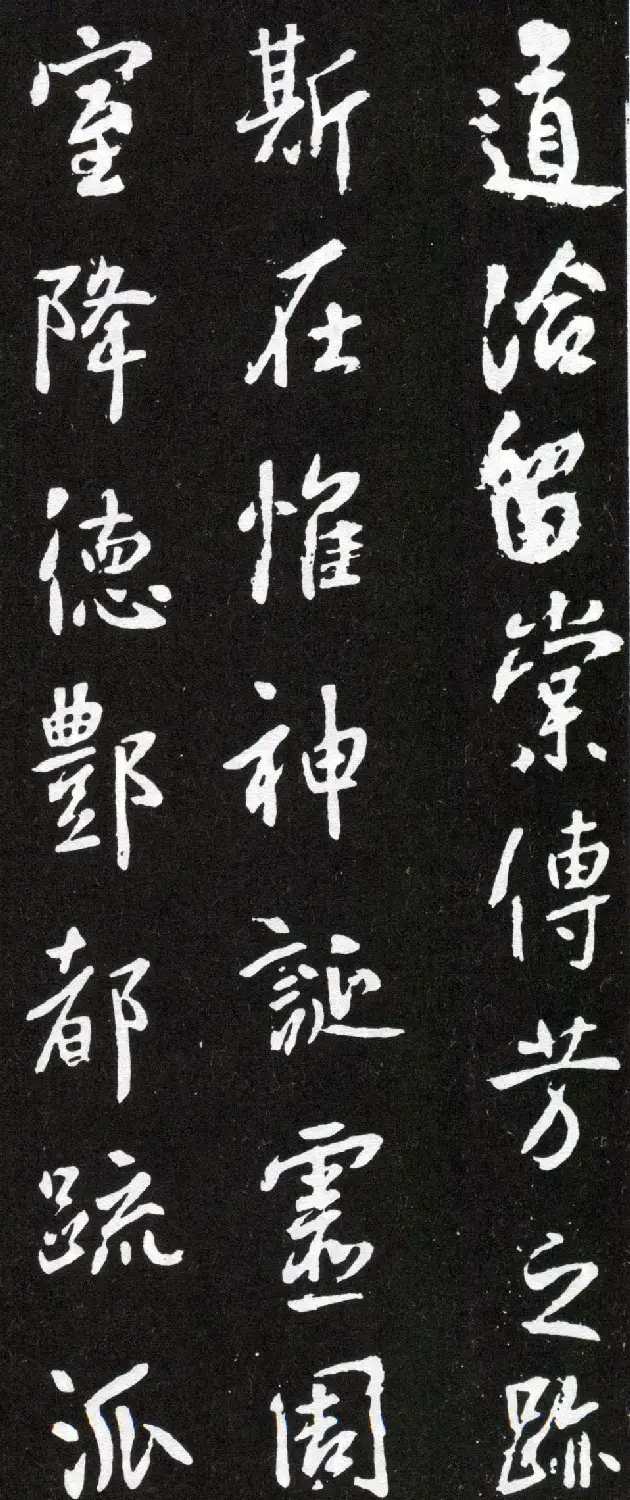 道洽留棠傳芳之跡
斯在惟神誕靈周
室降德酆都疏派